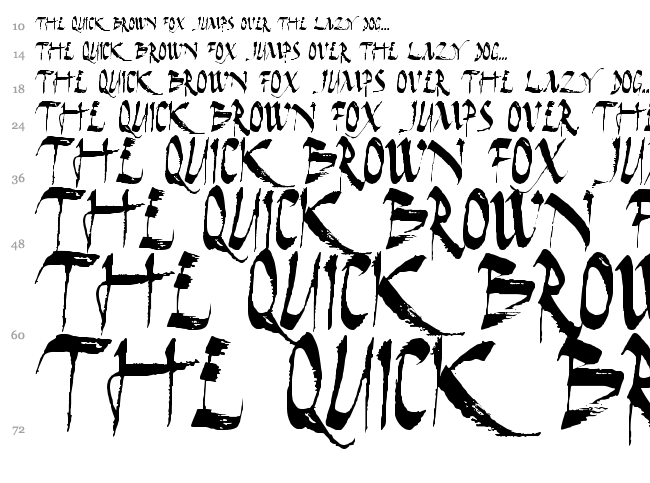 10 THE QUICK BROWN FOX JUMPS OVER THE LAZY DOG...
14 THE QUICK BROWN FOX JUMPS OVER THE LAZY DOG...
18 THE QUICK BROWN FOX JUMPS OVER THE LAZY DOG..
24 THE QUICK BROWN FOX JUMPS OVER THE
36 THE QUICK BROWN FOX JU
48 THE QUICK BROWN F
60 THE QUICK BROW
72 THE QUICK BR